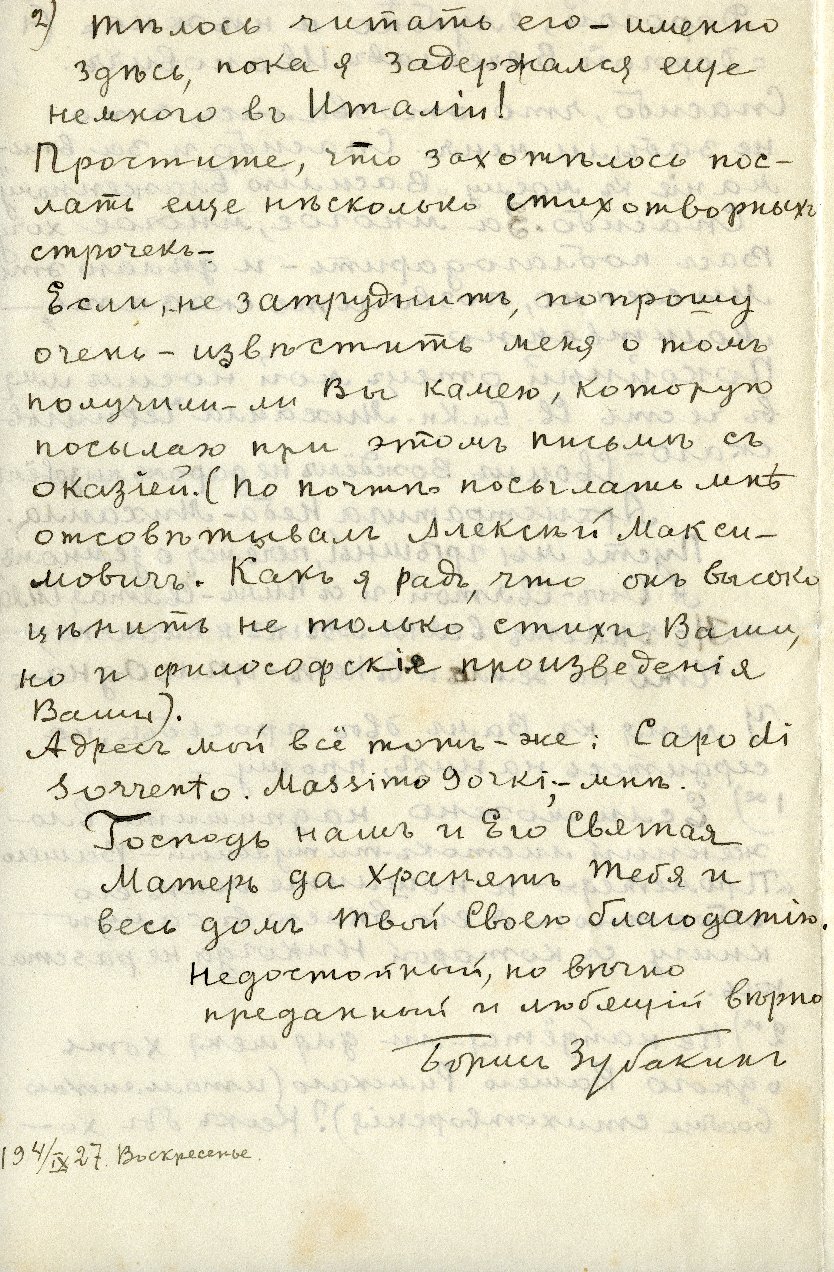 2) тѣлось читать его – именно
здѣсь, пока я задержался еще
немного въ Италіи!
Простите, что захотѣлось пос-
лать еще нѣсколько стихотворныхъ
строчекъ –
Если, не затруднитъ, попрошу
очень – извѣстить меня о томъ
получили-ли Вы камею, которую
посылаю при этомъ письмѣ съ
оказіей. (По почтѣ посылать мнѣ
отсовѣтывалъ Алексѣй Макси-
мовичъ. Какъ я радъ, что онъ высоко
цѣнитъ не только стихи Ваши,
но и философскія произведенія
Ваши).
Адресъ мой всё тотъ-же: Capo di
Sorrento. Massimo Gorki, – мнѣ.
Господь нашъ и Его Святая
Матерь да хранятъ Тебя и
весь домъ Твой Своею благодатію.
Недостойный, но вѣчно
преданный и любящій вѣрно
Борисъ Зубакинъ
19 4/IX 27. Воскресенье